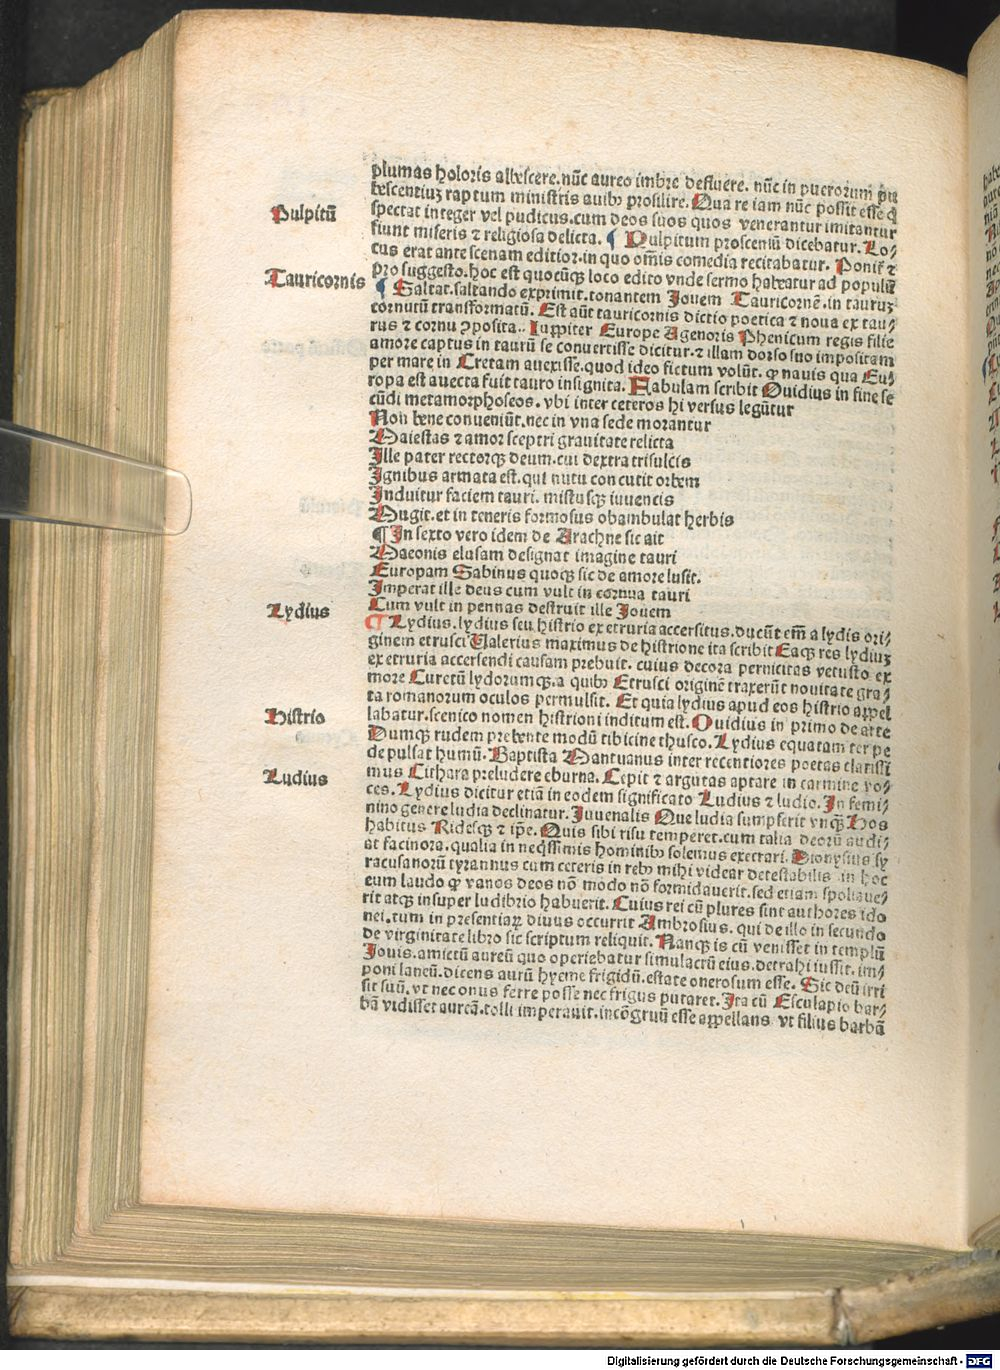 plumas holoris albescere. nūc aureo imbre defluere. nūc in puerorum pu
bescentiuȝ raptum ministris auibꝰ prosilire. Qua re iam nūc possit esse q̄
Pulpitū
spectat integer vel pudicus. cum deos suos quos venerantur imitantur
fiunt miseris ⁊ religiosa delicta. ¶ Pulpitum prosceniū dicebatur. Lo⸗
cus erat ante scenam editior. in quo om̄is comedia recitabatur. Ponit̄ ⁊
Tauricornis
pro suggesto. hoc est quocūqꝫ loco edito vnde sermo habeatur ad populū
¶ Saltat. saltando exprimit. tonantem Jouem Tauricornē. in tauruȝ
cornutū transformatū. Est aūt tauricornis dictio poetica ⁊ noua ex tau⸗
rus ⁊ cornu ꝯposita.. Iuppiter Europe Agenoris Phenicum regis filie
amore captus in taurū se conuertisse dicitur. ⁊ illam dorso suo impositam
per mare in Cretam auexisse. quod ideo fictum volūt. ꝙ nauis qua Eu⸗
ropa est auecta fuit tauro insignita. Fabulam scribit Ouidius in fine se
cūdi metamorphoseos. vbi inter ceteros hi versus legūtur
Non bene conueniūt. nec in vna sede morantur
Maiestas ⁊ amor sceptri grauitate relicta
Ille pater rectorqꝫ deum. cui dextra trisulcis
Ignibus armata est. qui nutu concutit orbem
Induitur faciem tauri. mistusqꝫ iuuencis
Mugit. et in teneris formosus obambulat herbis
¶ In sexto vero idem de Arachne sic ait
Maeonis elusam designat imagine tauri
Europam Sabinus quoqꝫ sic de amore lusit.
Imperat ille deus cum vult in cornua tauri
Lydius
Cum vult in pennas destruit ille Jouem
¶ Lydius. lydius seu histrio ex etruria accersitus. ducūt em̄ a lydis ori⸗
ginem etrusci Valerius maximus de histrione ita scribit Eaqꝫ res lydiuȝ
ex etruria accersendi causam prebuit. cuius decora pernicitas vetusto ex
more Curetū lydorumqꝫ. a quibꝰ Etrusci originē traxerūt nouitate gra⸗
ta romanorum oculos permulsit. Et quia lydius apud eos histrio appel
Histrio
labatur. scenico nomen histrioni inditum est. Ouidius in primo de arte
Dumqꝫ rudem prebente modū tibicine thusco. Lydius equatam ter pe
de pulsat humū. Baptista Mantuanus inter recentiores poetas clarissi
Ludius
mus Cithara preludere eburna. Cepit ⁊ argutas aptare in carmine vo⸗
ces. Lydius dicitur etiā in eodem significato Ludius ⁊ ludio. In femi⸗
nino genere ludia declinatur. Juuenalis Que ludia sumpserit vnqꝫ Hos
habitus Ridesqꝫ ⁊ ip̄e. Quis sibi risu temperet. cum talia deorū audi⸗
at facinora. qualia in neqssimis hominibꝰ solemus execrari. Dionysius sy
racusanorū tyrannus cum ceteris in rebꝰ mihi videar detestabilis in hoc
eum laudo ꝙ vanos deos nō modo nō formidauerit. sed etiam spoliaue⸗
rit atqꝫ insuper ludibrio habuerit. Cuius rei cū plures sint authores ido
nei. tum in presentiaꝝ diuus occurrit Ambrosius. qui de illo in secundo
de virginitate libro sic scriptum reliquit. Nanqꝫ is cū venisset in templū
Jouis. amictū aureū quo operiebatur simulacrū eius. detrahi iussit. im⸗
poni laneū. dicens aurū hyeme frigidū. estate onerosum esse. Sic deū irri
sit suū. vt nec onus ferre posse nec frigus putaret. Ita cū Esculapio bar⸗
bā vidisset aureā. tolli imperauit. incōgruū esse appellans vt filius barbā
Digitalisierung gefördert durch die Deutsche Forschungsgemeinschaft - DFG